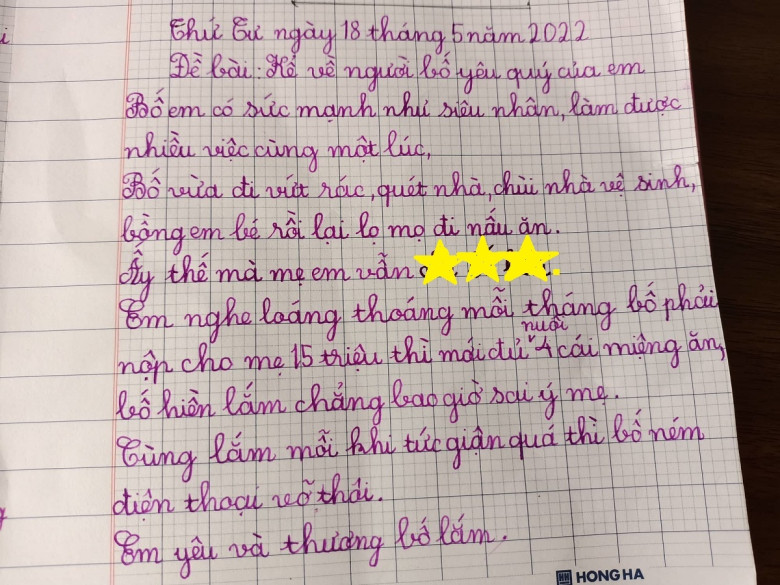 Thứ Tư ngày 18 tháng 5 năm 2022
Đề bài: Kể về người bố yêu quý của em
Bố em có sức mạnh như siêu nhân, làm được
nhiều việc cùng một lúc,
Bố vừa đi vứt rác, quét nhà, chùi nhà vệ sinh,
bồng em bé rồi lại lọ mọ đi nấu ăn.
Ấy thế mà mẹ em vẫn
Em nghe loáng thoáng mỗi tháng bố phải
nuôi
nộp cho mẹ 15 triệu thì mới đủ 4 cái miệng ăn,
bố hiền lắm chẳng bao giờ sai ý mẹ.
Cùng lắm mỗi khi tức giận quá thì bố ném
điện thoại vỡ thôi.
Em yêu và thương bố lắm.
HONG HA